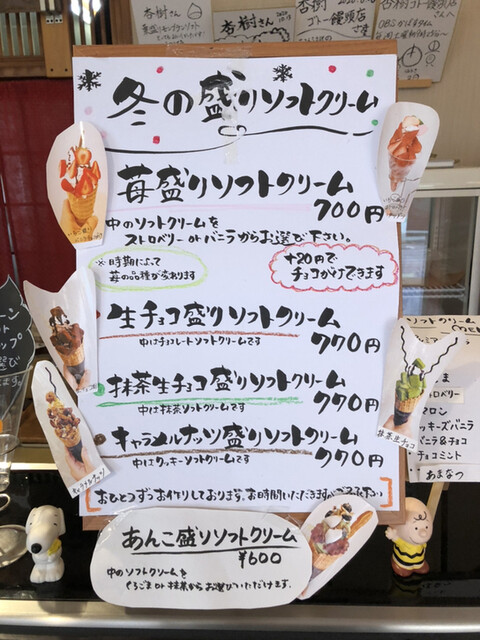 杏樹さん
杏樹さん
杏樹
ゴトー饅頭店
さま
杏樹ゴトー饅頭店
さんへ
冬の盛りソフトクリーム
苺盛りソフトクリーム
700円
中のソフトクリームを
ストロベリーorバニラからお選び下さい。
※時期によって
苺の品種が変わります
+20円で
チョコがけできます
生チョコ盛りソフトクリーム
中はチョコレートソフトクリームです
770円
抹茶生チョコ盛りソフトクリーム
中は抹茶ソフトクリームです
770円
キャラメルナッツ盛りソフトクリーム
中はクッキーソフトクリームです
770円
おひとつずつお作りしております。お時間いただきますがご了承下さい
あんこ盛りソフトクリーム
¥600
中のソフトクリームを
くろごまor抹茶からお選びいただけます。
抹茶生チョコ
キャラメルナッツ
ソフトクリーム
MENU
トロベリー
マロン
クッキーズバニラ
バニラ&チョコ
チョコミント
あまなつ